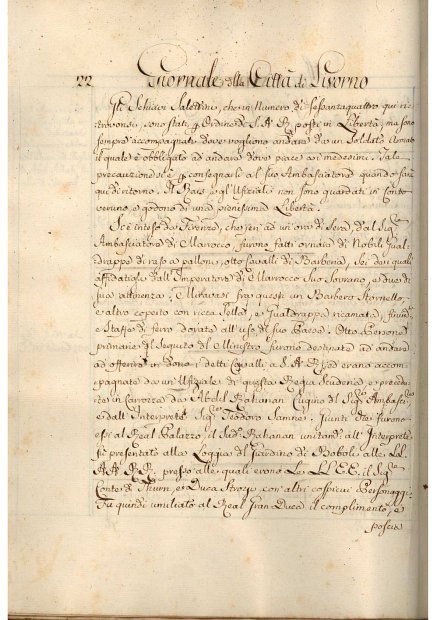 22 Giornale della Città di Livorno
Gli Schiavi Salettini, che in Numero di Sessantaquattro qui ri-
trovonsi, sono stati p. Ordine di S. A. R. posti in Libertà; ma sono
sempre accompagnati dove vogliono andare da un Soldato Armato
il quale è obbligato ad andare dove piace ai medesimi. Tale
precauzione è p. consegnarli al suo Ambasciatore quando sarà
qui di ritorno. Il Rais e gl'Ufiziali non sono guardati in conto
veruno, e godono di una pienissima Libertà.
Si è inteso da Firenze, che jeri ad un'ora di Sera, dal Sigre
Ambasciatore di Marrocco, furono fatti ornare di Nobili Gual-
drappe di raso a pallone, otto Cavalli di Barberia, Sei dei quali
affidatigli dall'Imperatore di Marrocco Suo Sovrano, e due di
sua attinenza. Miravasi fra questi un Barbero Stornello,
e altro coperto con ricca Sella, e Gualdrappa ricamata,
e Staffe di ferro dorate all'uso del suo Paese. Otto Persone
primarie del Seguito del Ministro furono destinate ad andare
ad offerire in Dono i detti Cavalli a S. A. R. ed erano accom-
pagnate da un'Ufiziale di questa Regia Scuderia, e precedute
in Carrozza da Abdel Rahaman Cugino del Sigre Ambascre
e dall'Interprete Sigre Teodoro Samne. Giunti che furono
essi al Real Palazzo, il Sudo Rahaman unitamte all'Interprete
si presentò alla Loggia del Giardino di Boboli alle LL.
AA. RR. presso alle quali erano Le LL. EE. il Sigre
Conte di Thurn, e Duca Strozzi con altri cospicui Personaggi.
Fu quindi umiliato al Real Gran Duca il complimento, e
poscia